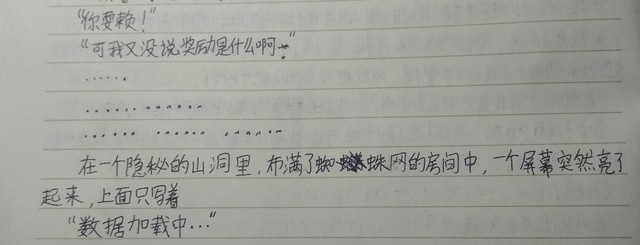 “你耍赖！”
“可我又没说奖励是什么啊~”
……
…… ………
…… …… ………
在一个隐秘的山洞里，布满了蜘蛛网的房间中，一个屏幕突然亮了
起来，上面只写着
“数据加载中…”